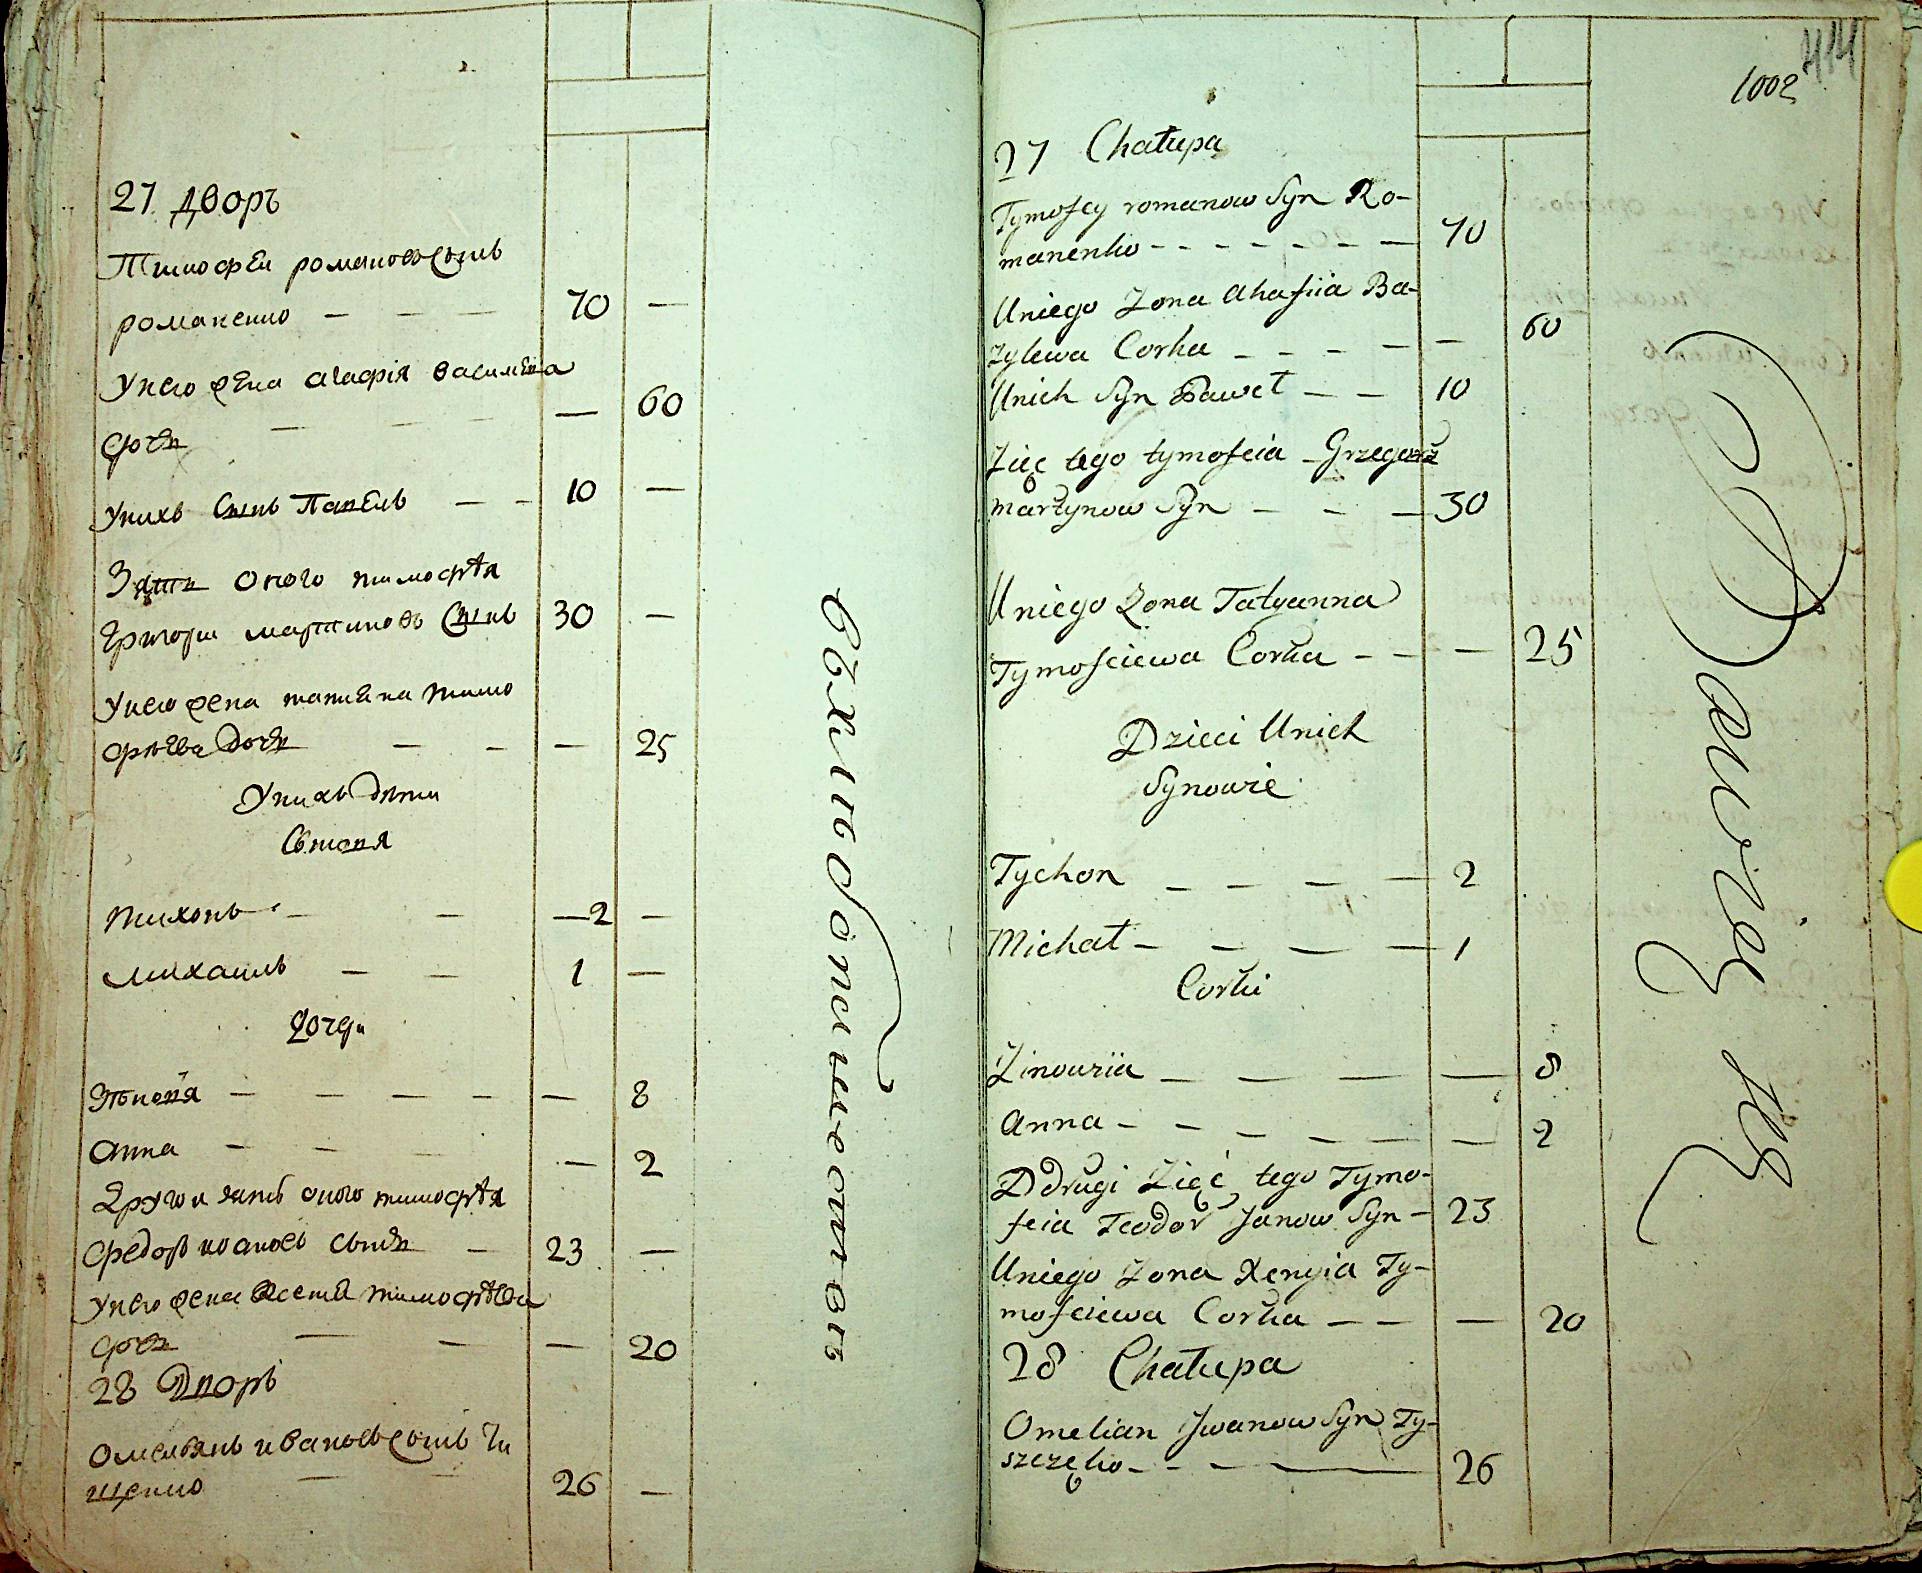 27 дворъ
Тимофей романовъ сынъ
романенко — — — 70 —
У него жена агафія василева
дочь — — — — 60
У нихъ сынъ Павелъ — — 10 —
Зять оного тимофѣя
Григори мартиновъ сынъ 30 —
У него жена татияна тимо
фѣева дочь — — — 25
У нихъ дѣти
Сыновя
тихонъ — — — 2 —
михаилъ — — 1 —
дочери
анна — — — — 2
Другий зять оного тимофѣя
Федоръ ивановъ сынъ — 23 —
У него жена Ксения тимофѣева
дочь — — — 20
28 Дворъ
Омелянъ ивановъ сынъ Ти
щенко — — 26 —
414
1002
27 Chałupa
Tymofey romanow Syn Ro-
manenko — — — — — — — 70
U niego Zona Ahafiia Ba-
zylewa Corka — — — — — 60
U nich Syn Paweł — — 10
Zięc tego tymofeia Grzegorz
martynow Syn — — — 30
U niego Zona Tatyanna
Tymofeiewa Corka — — — 25
Dzieci U nich
Synowie
Tychon — — — — 2
Michał — — — — 1
Corki
Zinowiia — — — — 8
Anna — — — — — — — 2
Ddrugi Zięć tego Tymo-
feia Teodor Janow Syn — 23
U niego Zona Xenyia Ty-
mofeiewa Corka — — — 20
28 Chałupa
Omelian Jwanow Syn Ty-
szczęko — — — — 26